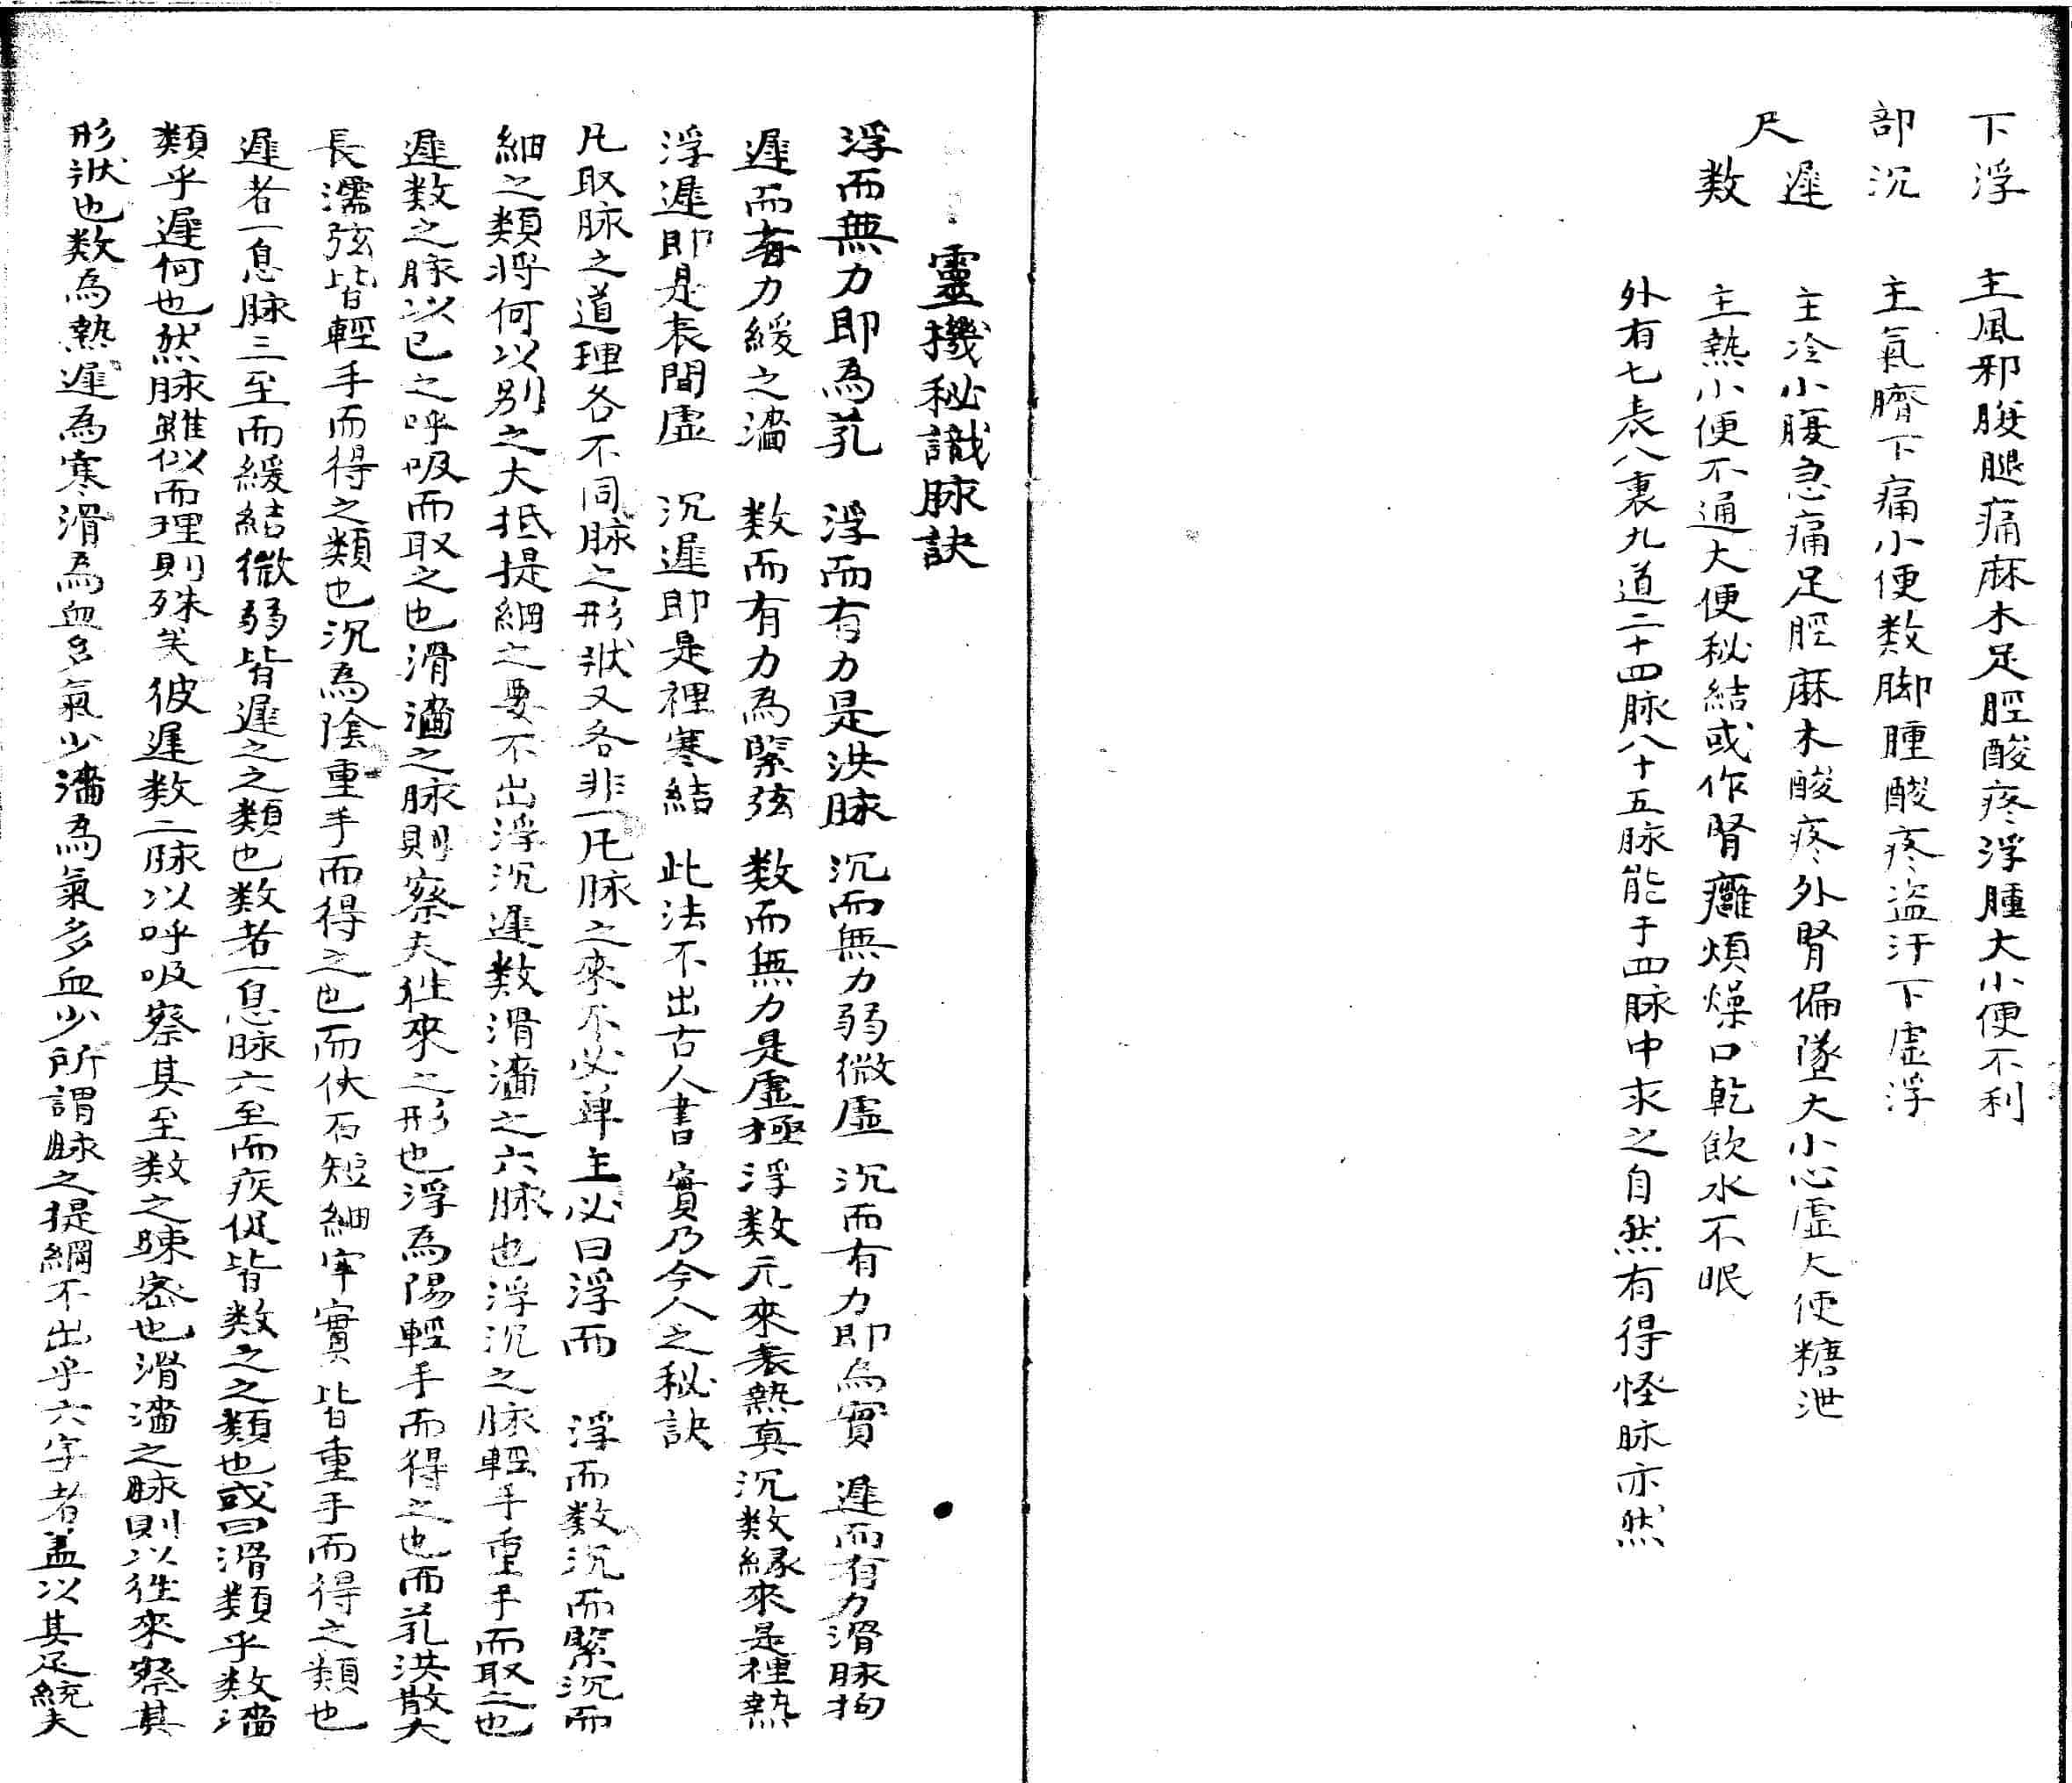 下浮　主風邪腹腿痛麻木足脛酸疼浮腫大小便不利
部沉　主氣臍下痛小便数脚腫酸疼盗汗下虛浮
尺
遲　主冷小腹急痛足脛麻木酸疼外腎偏墜大小心虛大便糖泄
数　主熱小便不通大便秘結或作腎癰煩燥口乾飲水不眠
外有七表八裏九道二十四脉八十五脉能于四脉中求之自然有得怪脉亦然
靈機秘識脉訣
浮而無力即為芤　浮而有力是洪脉　沉而無力弱微虛　沉而有力即為實　遲而有力滑脉拘
遲而力緩之濇　数而有力為緊弦　数而無力是虛極　浮数元來表熱真　沉数緣來是裡熱
浮遲即是表間虛　沉遲即是裡寒結　此法不出古人書　實乃今人之秘訣
凢取脉之道理各不同脉之形狀又各非一凢脉之來不必单主必曰浮而　浮而数沉而緊沉而
細之類將何以别之大抵提綱之要不出浮沉遲数滑濇之六脉也浮沉之脉輕手重手而取之也
遲数之脉以已之呼吸而取之也滑濇之脉則察夫往來之形也浮為陽輕手而得之也而芤洪散大
長濡弦皆輕手而得之類也沉為陰重手而得之也而伏石短細牢實皆重手而得之類也
遲者一息脉三至而緩結微弱皆遲之之類也数者一息脉六至而疾促皆数之之類也或曰滑類乎数濇
類乎遲何也然脉雖似而理則殊矣彼遲数二脉以呼吸察其至数之踈密也滑濇之脉則以往來察其
形狀也数為熱遲為寒滑為血多氣少濇為氣多血少所謂脉之提綱不出乎六字者盖以其足統夫